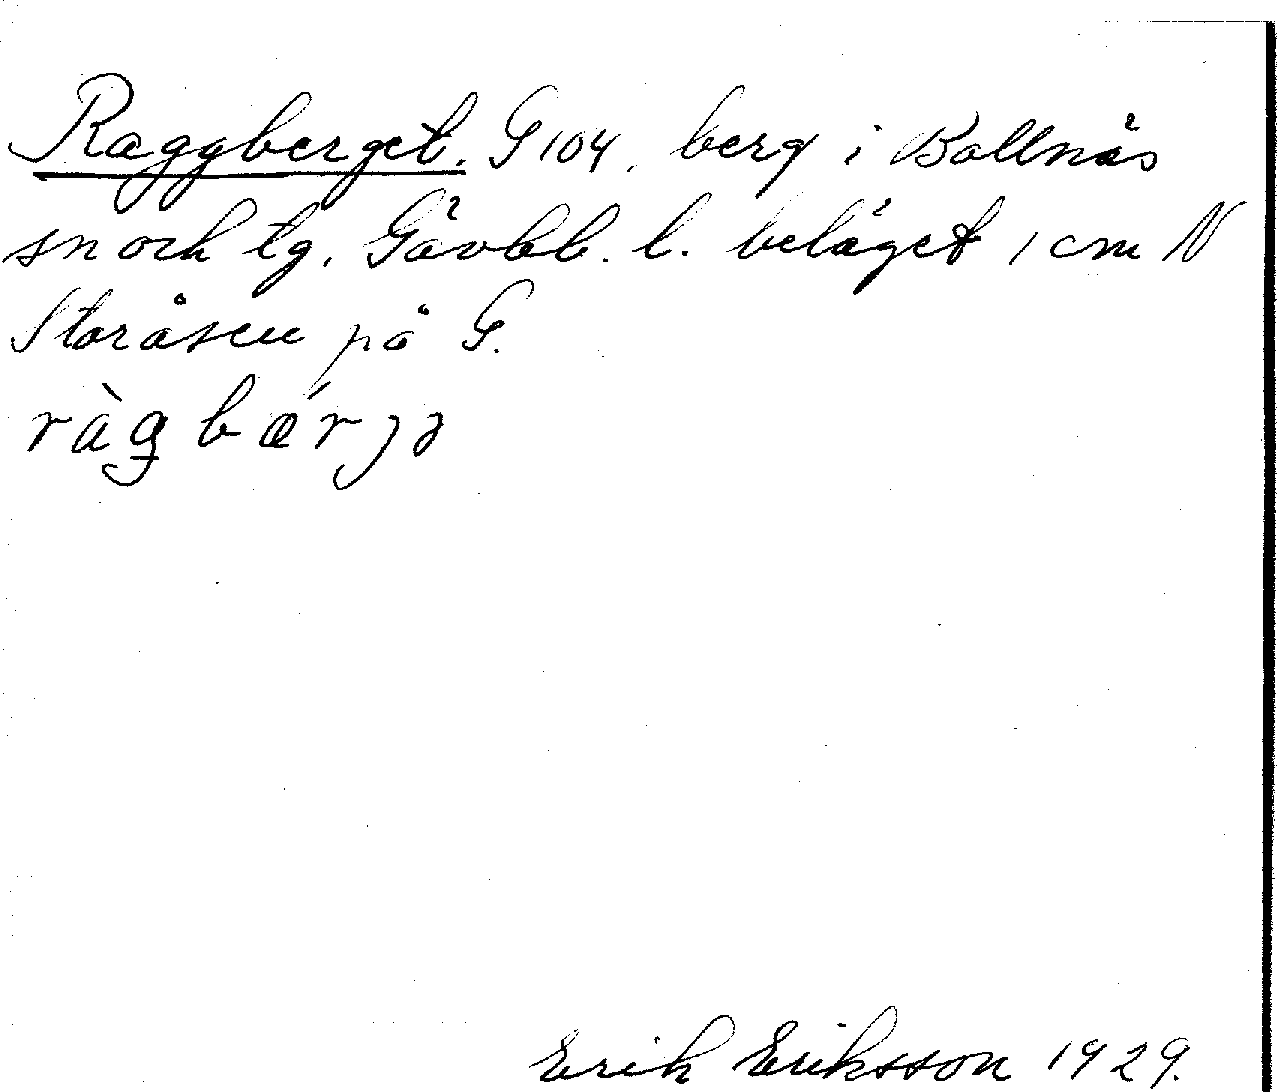 Raggberget. G 104. berg i Bollnäs
sn och tg. Gävleb. l. beläget 1 cm N
Storåsen på G.
ràgbǽrjə
Erik Eriksson 1929.